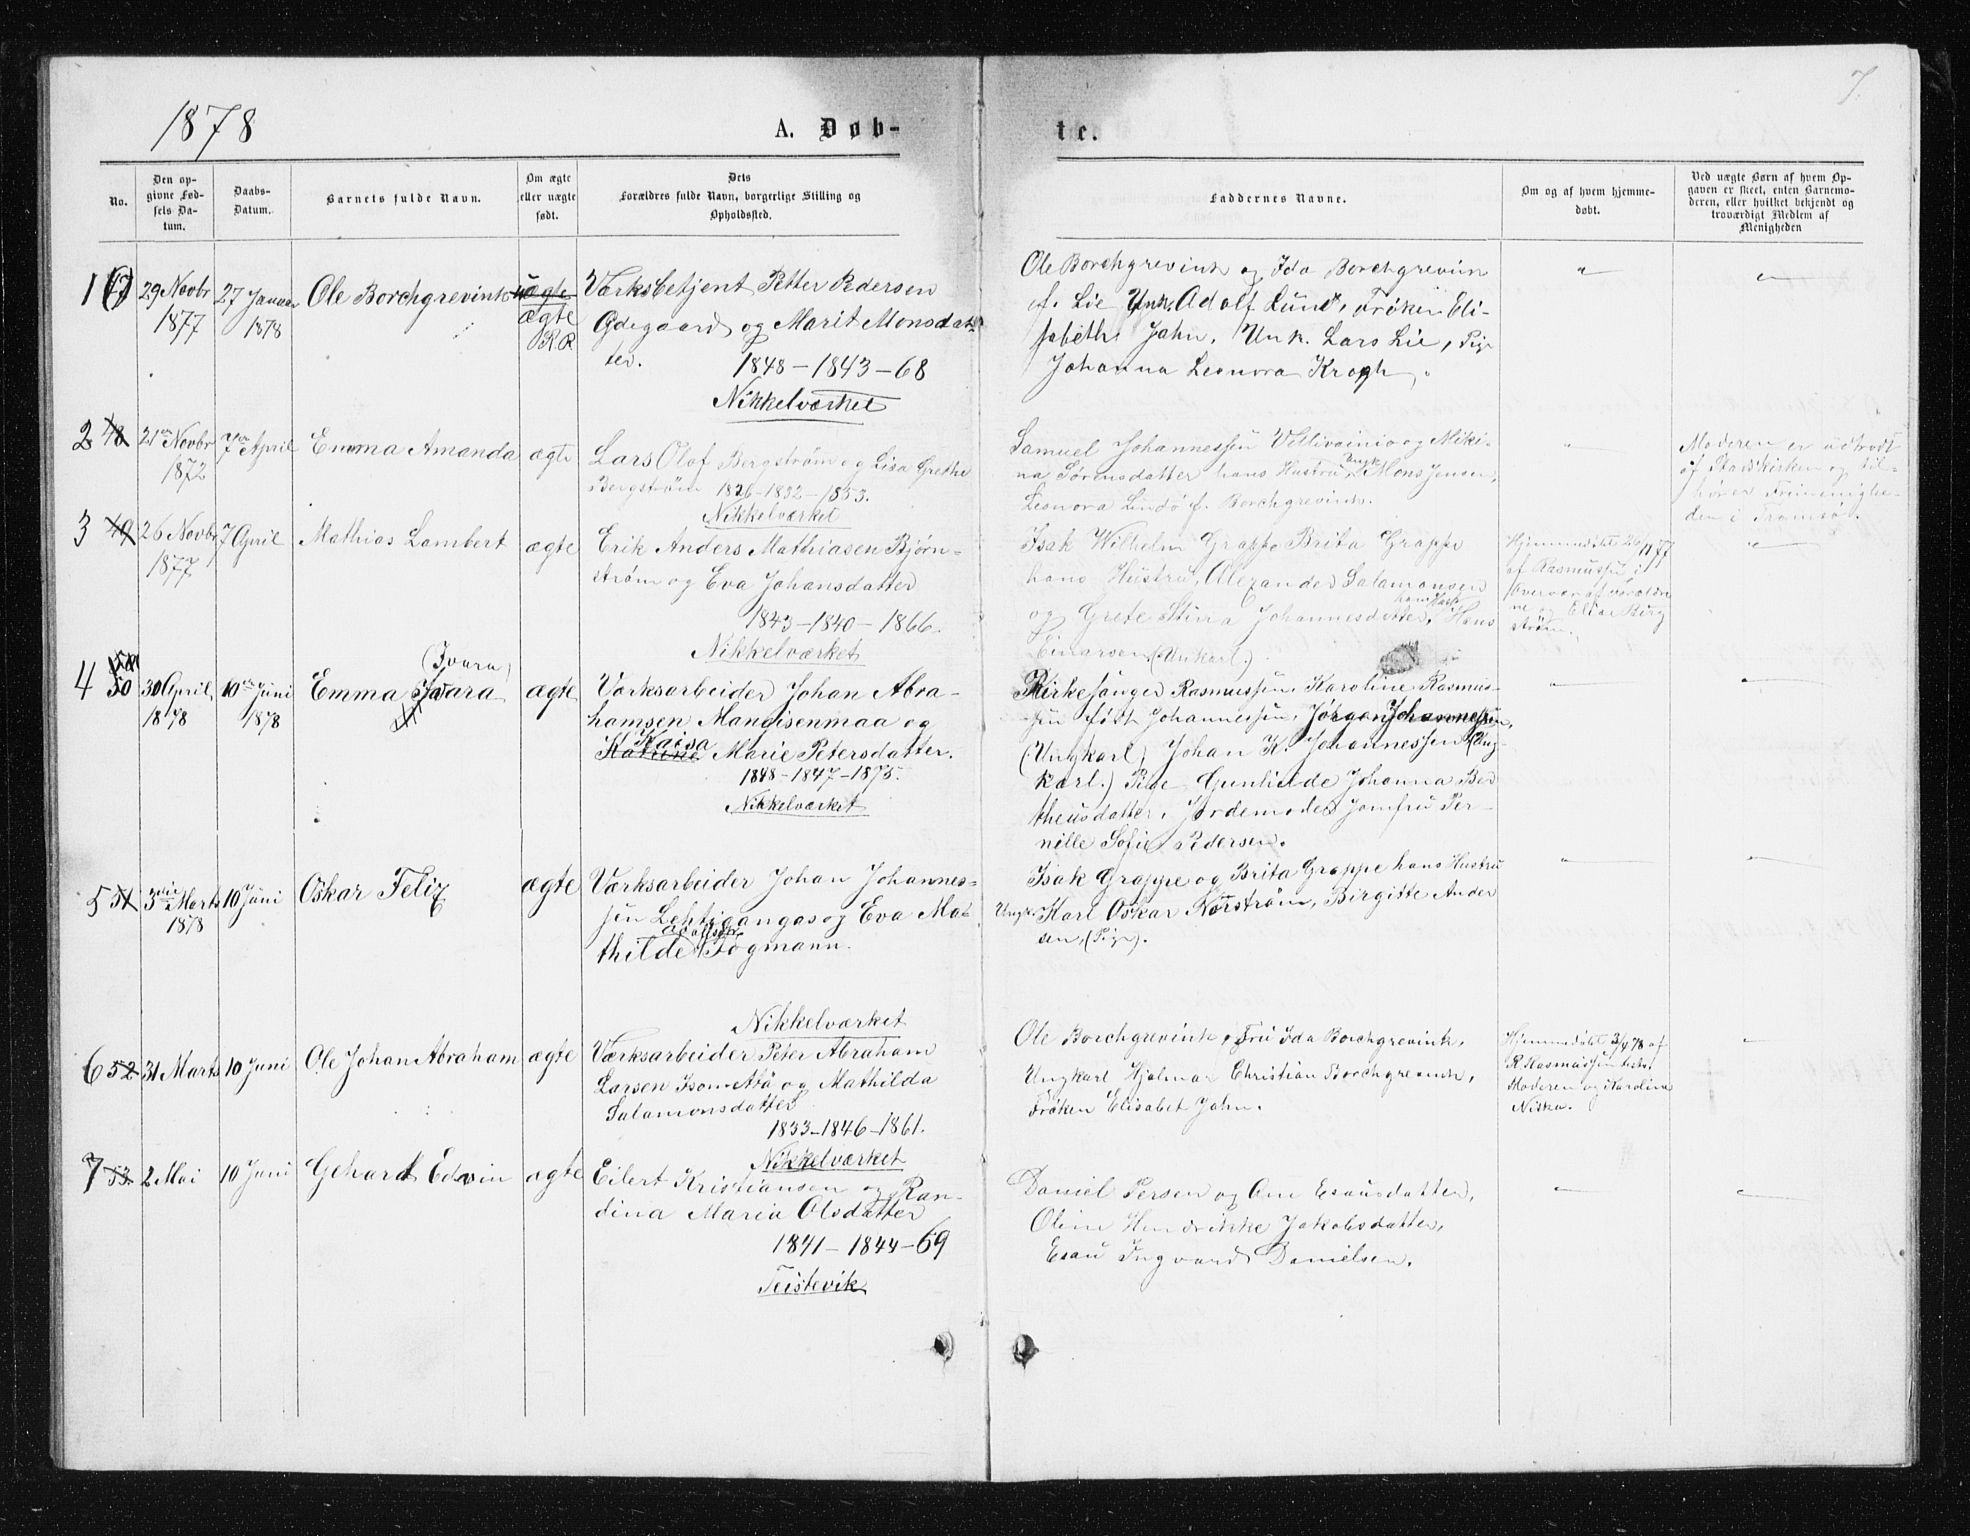 1878
A. Døb-
te.
7.
No.
Den op-
givne Fød-
sels Da-
tum.
Daabs-
Datum.
Barnets fulde Navn.
Om ægte
eller uægte
født.
Dets
Forældres fulde Navn, borgerlige Stilling og
Opholdssted.
Faddernes Navne.
Om og af hvem hjemme-
døbt.
Ved uægte Børn af hvem Op-
gaven er skeet, enten Barnemo-
deren, eller hvilket bekjendt og
troværdigt Medlem af
Menigheden
1
29 Novbr
1877
27 Januar
1878
Ole Borchgrevink
uægte
ægte
R.R
Værksbetjent Petter Pedersen
Ødegaard og Marit Monsdat-
ter.
1848-1843-68
Nikkelværket
Ole Borchgrevink og Ida Borchgrevink
f. Lie Unk. Adolf Lund, Frøken Eli-
sabeth Jahn, Unk. Lars Lie, Pige
Johanna Leonora Krogh.
2 48
21de Novbr
1872
7de April
Emma Amanda
ægte
Lars Olof Bergstrøm og Lisa Grethe
Bergstrøm 1826-1832-1853.
Nikkelværket
Samuel Johannessen Veltivainio og Miki-
na Sørensdatter hans Hustru, Ungk. Mons Jensen,
Leonora Lindø f. Borchgrevink.
Moderen er udtraadt
af Statskirken og til-
hører Frimenighe-
den i Tromsø.
3 49
26 Novbr
1877
7 April
Mathias Lambert
ægte
Erik Anders Mathiasen Bjørn-
strøm og Eva Johansdatter
1843-1840-1866.
Nikkelværket
Isak Wilhelm Grappe Brita Grappe
hans Hustru, Alexander Salamonsen
og Grete Stina Johannesdatter, hans Hustr. Hans
Einarsen (Unkarl.)
Hjemmedøbt 26/11 77
af Rasmussen i
Overvær af Forældre-
ne og Elias Berg
strøm.
4 50
30 April
1878
10de Juni
1878
(Ivara)
Emma
ægte
Værksarbeider Johan Abra-
hamsen Mancisenmaa og
Kaisa
Marie Petersdatter.
1848-1847-1875.
Nikkelværket
Kirkesanger Rasmussen, Karoline Rasmus-
sen født Johannessen, Jørgen Johannessen,
(Ungkarl) Johan K. Johannessen (Ung-
karl.) Pige Gunhilde Johanna Ber
theusdatter, Jordemoder Jomfru Per-
nille Sofie Pedersen.
5 51
3die Marts
1878
10 Juni
Oskar Felix
ægte
Værksarbeider Johan Johannes-
sen Lehtigangas og Eva Ma-
thilde Fogmann.
Nikkelværket
Isak Grappe og Brita Grappe hans Hustru
Ungk. Karl Oskar Norstrøm, Birgitte Ander
sen, (Pige).
6 52
31 Marts
10 Juni
Ole Johan Abraham
ægte
Værksarbeider Peter Abraham
Larsen Isometta og Mathilda
Salamonsdatter
1833-1846-1861.
Nikkelværket
Ole Borchgrevink, Fru Ida Borchgrevink,
Ungkarl Hjalmar Christian Borchgrevink,
Frøken Elisabet Jahn.
Hjemmedøbt 3/4 78 af
R. Rasmussen
Moderen og Karoline
Niska.
7 53.
2 Mai
10 Juni
Gehard Edvin
ægte
Eilert Kristiansen og Ran-
dina Maria Olsdatter
1841-1844-69
Teistevik
Daniel Persen og Ane Esausdatter,
Oline Hendrikke Jakobsdatter,
Esau Ingvard Danielsen.